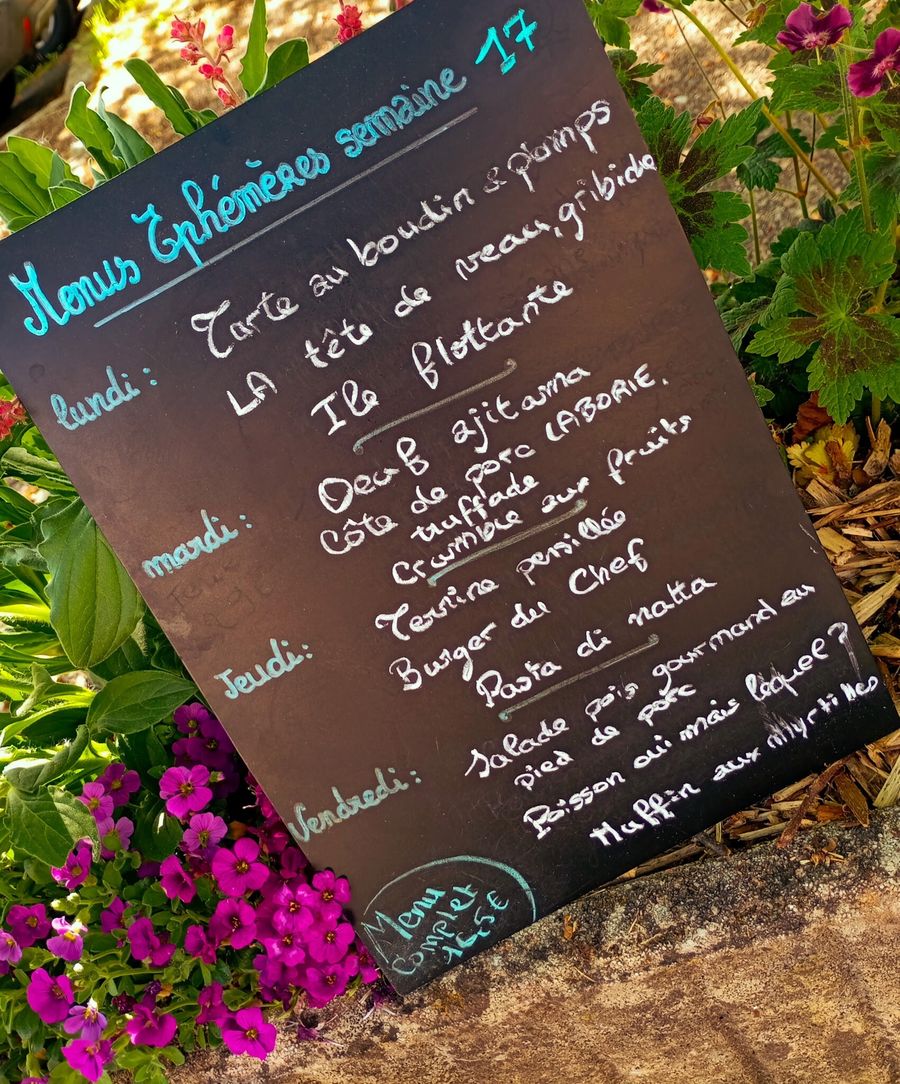 Menus Ephémères semaine 17
lundi :
Tarte au boudin & pomps
LA tête de veau, gribiche
Ile flottante
mardi :
Oeuf ajitama
Côte de porc LABORIE.
truffade
Crumble aux fruits
Jeudi :
Terrine persillée
Burger du Chef
Pasta di natta
Vendredi :
Salade pois gourmand au
pied de porc
Poisson oui mais lequel ?
Muffin aux Myrtilles
Menu
Complet
16,5€